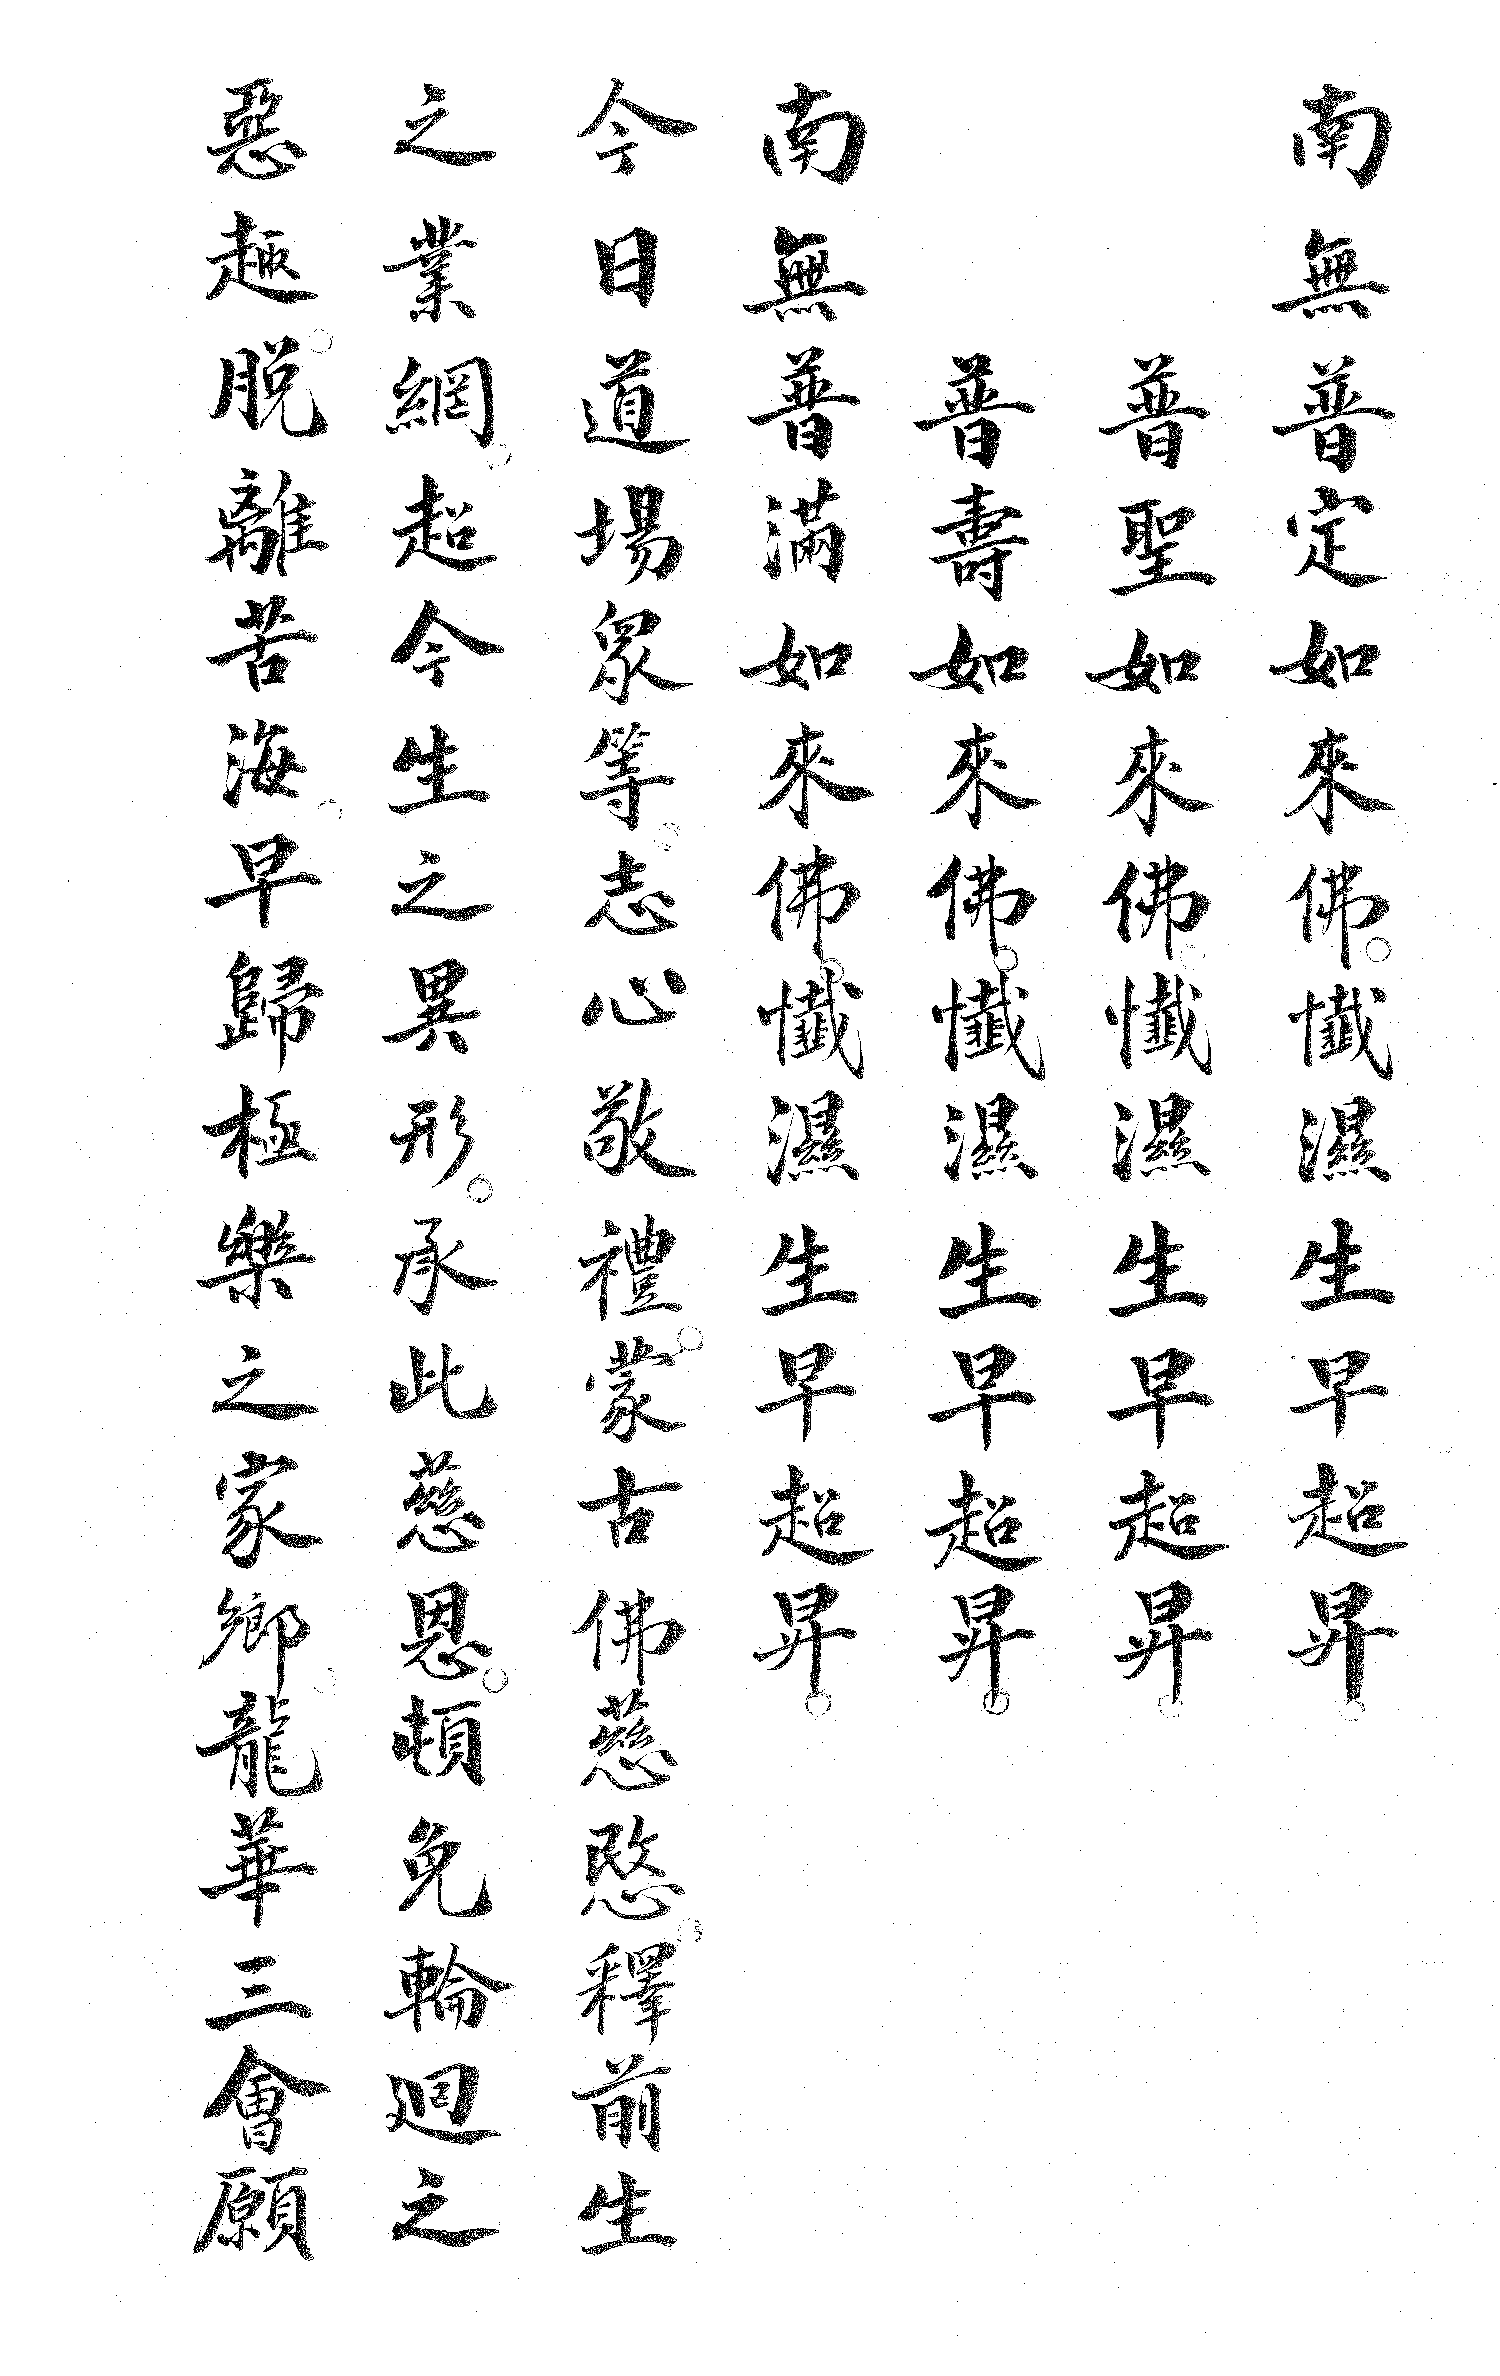 南無普定如來佛。懺濕生早超昇。
普聖如來佛。懺濕生早超昇。
普壽如來佛。懺濕生早超昇。
南無普滿如來佛。懺濕生早超昇。
今日道場眾等。志心敬禮。蒙古佛慈愍。釋前生
之業網。超今生之異形。承此慈恩。頓免輪迴之
惡趣。脫離苦海。早歸極樂之家鄉。龍華三會願